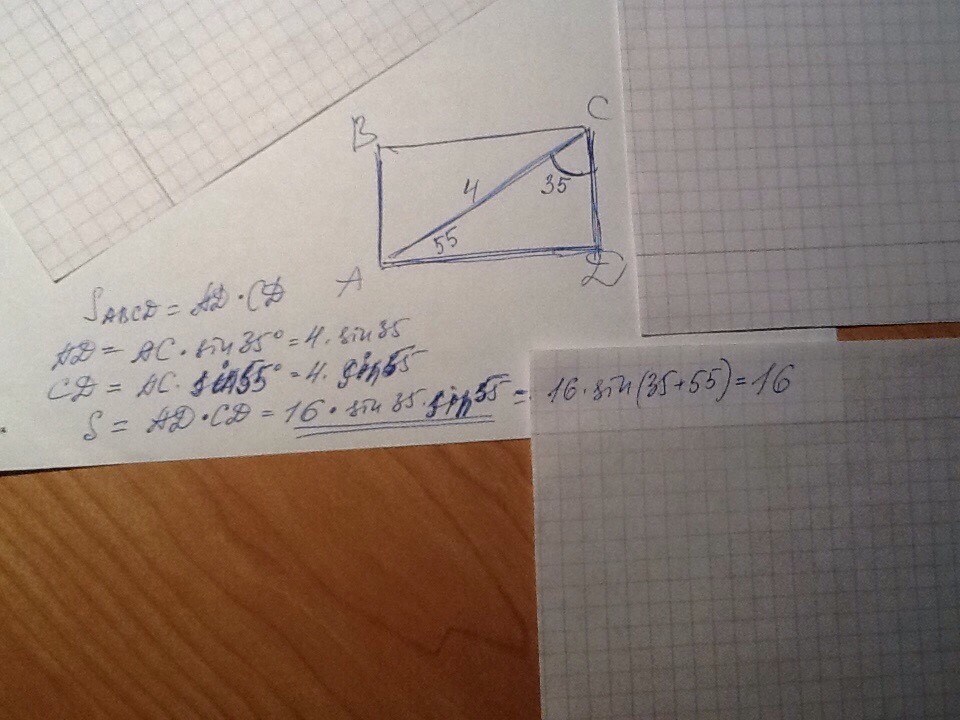 B
C
4
35
55
A
D
S ABCD = AD · CD
AD = AC · sin 35° = 4 · sin 35
CD = AC · sin 55° = 4 · sin 55
S = AD · CD = 16 · sin 35 · sin 55 = 16 · sin(35+55) = 16